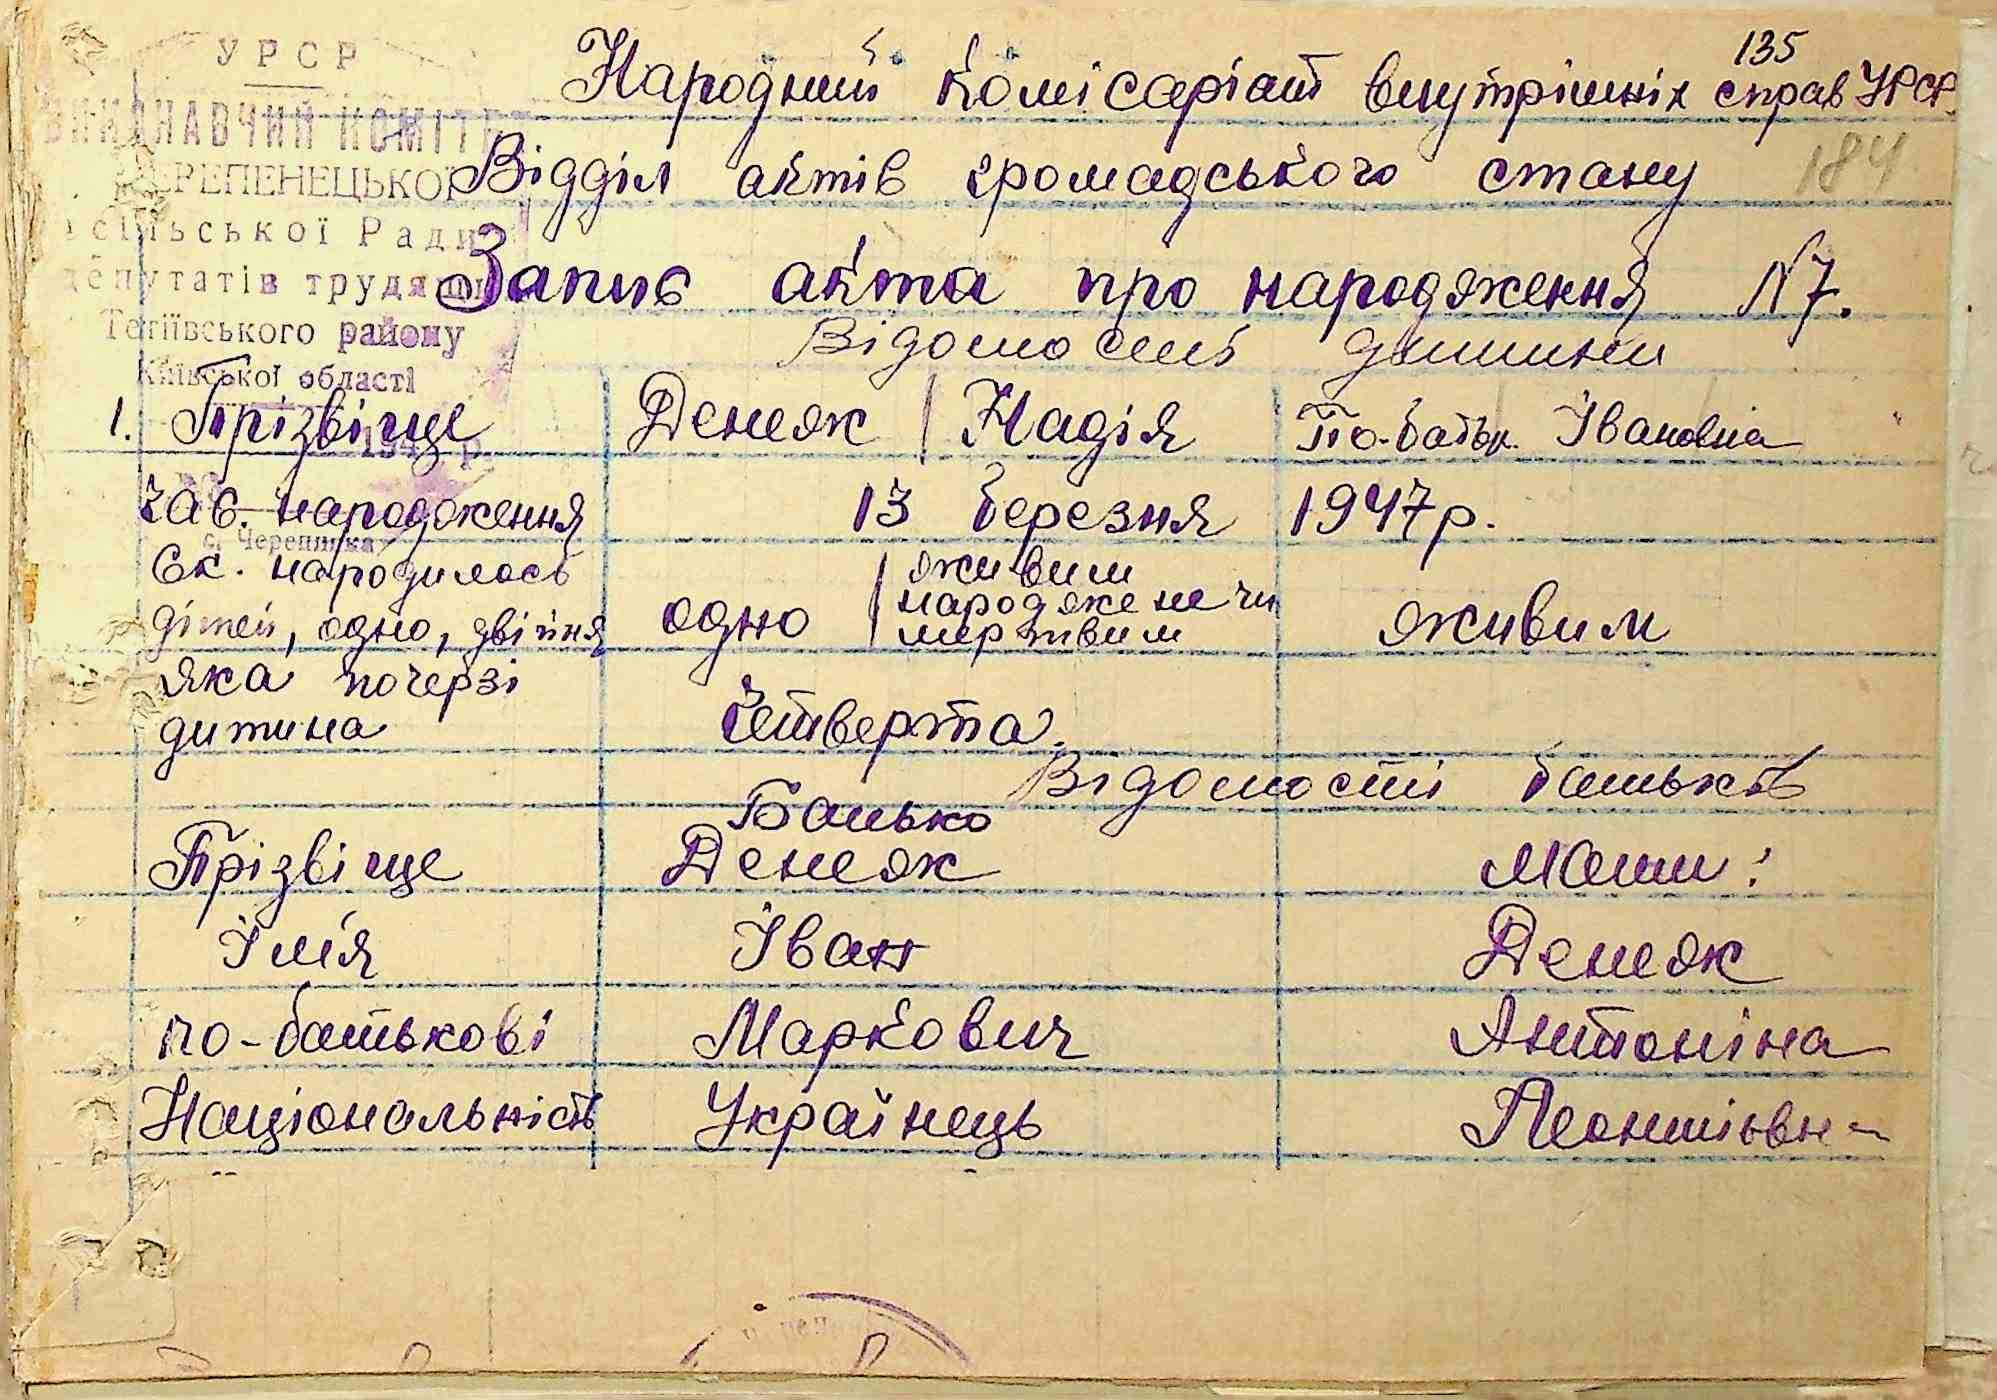 135
УРСР
Народний комісаріат внутрішніх справ УРСР
ВИКОНАВЧИЙ КОМІТЕТ
ЧЕРЕПЕНЕЦЬКОЇ
Відділ актів громадського стану 184
сільської Ради
депутатів трудящих
Запис акта про народження №7.
Тетіївського району
Відомость дитини
Київської області
1. Прізвіще Денеж / Надія По-батьк. Івановна
194 р.
Час. народження 13 березня 1947р.
с. Черепинка
Ск. народилось
дітей, одно, двійня одно / живим народжене чи мертвим живим
яка почерзі
дитина Четверта.
Відомості батьків
Батько
Прізвіще Денеж Мати:
Ім'я Іван Денеж
по-батькові Маркович Антоніна
Національність Українець Леонтіївн